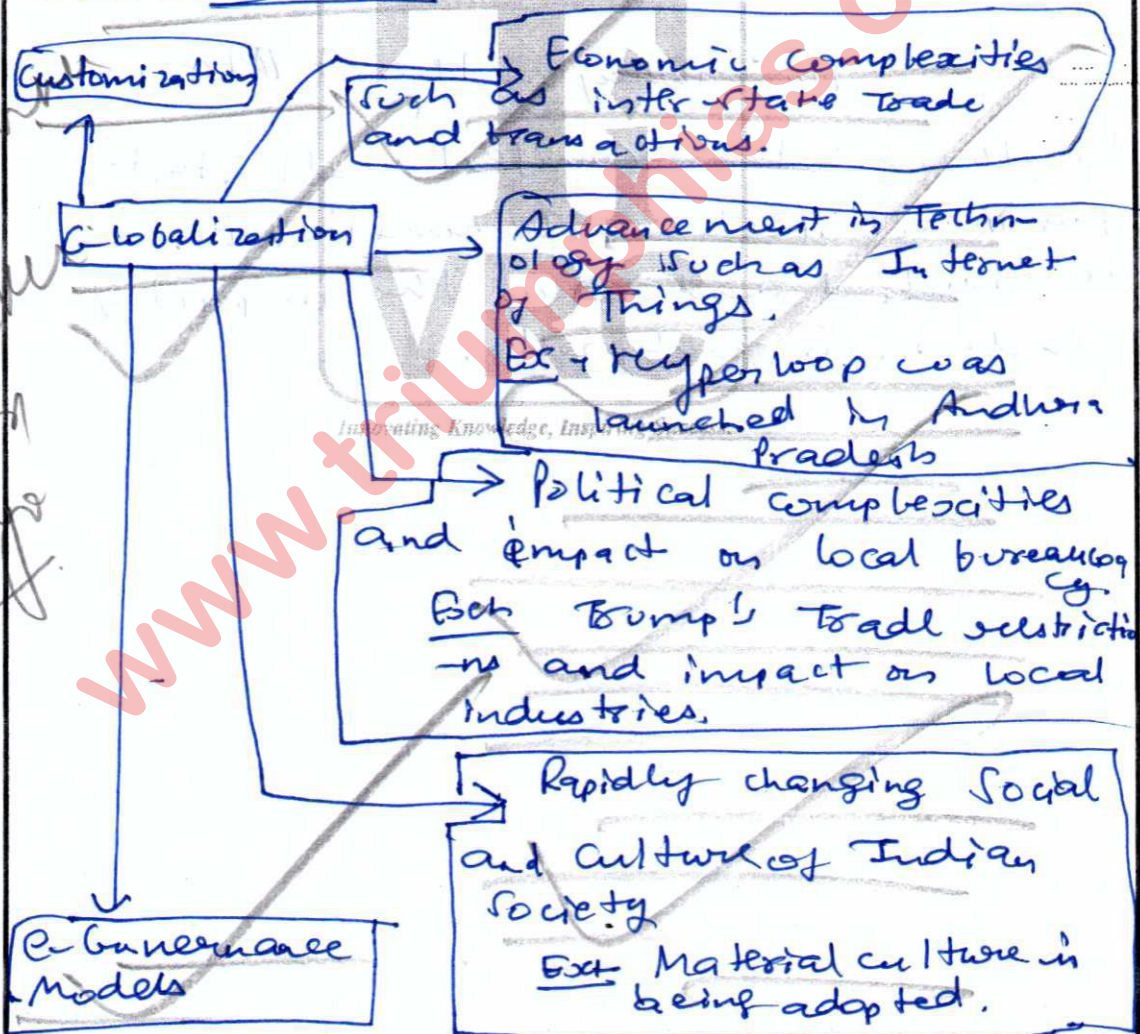 Customization
Economic Complexities
such as inter-state Trade
and transactions.
Globalization
Advancement in Techn-
ology such as Internet
of Things.
Ex → Hyperloop was
launched in Andhra
Pradesh
Innovating Knowledge,
Political complexities
and impact on local bureaucra
cy.
Ex → Trump's Trade restrictio
-ns and impact on local
industries.
Rapidly changing Social
and Culture of Indian
Society.
Ex → Material culture is
being adopted.
e-Governance
Models
www.triumphias.c